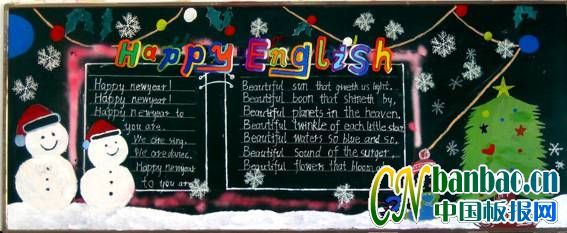 Happy English
Happy newyear!
Happy newyear!
Happy newyear to
you are.
We are sing,
We are dance,
Happy newyear
to you are
Beautiful sun that giveth us light,
Beautiful boon that shineth by,
Beautiful planets in the heaven.
Beautiful twinkle of each little star
Beautiful waters so blue and so,
Beautiful sound of the surger,
Beautiful flowers that bloom
CNbanbao.cn
中国板报网